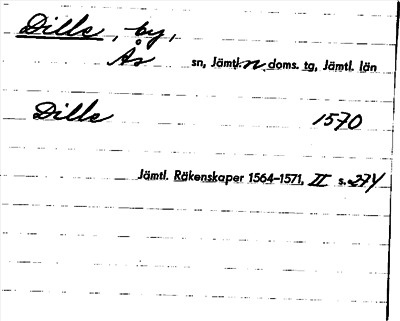 Dille, by,
Ås sn, Jämtl. n. doms. tg, Jämtl. län
Dille 1570
Jämtl. Räkenskaper 1564-1571, II s. 274